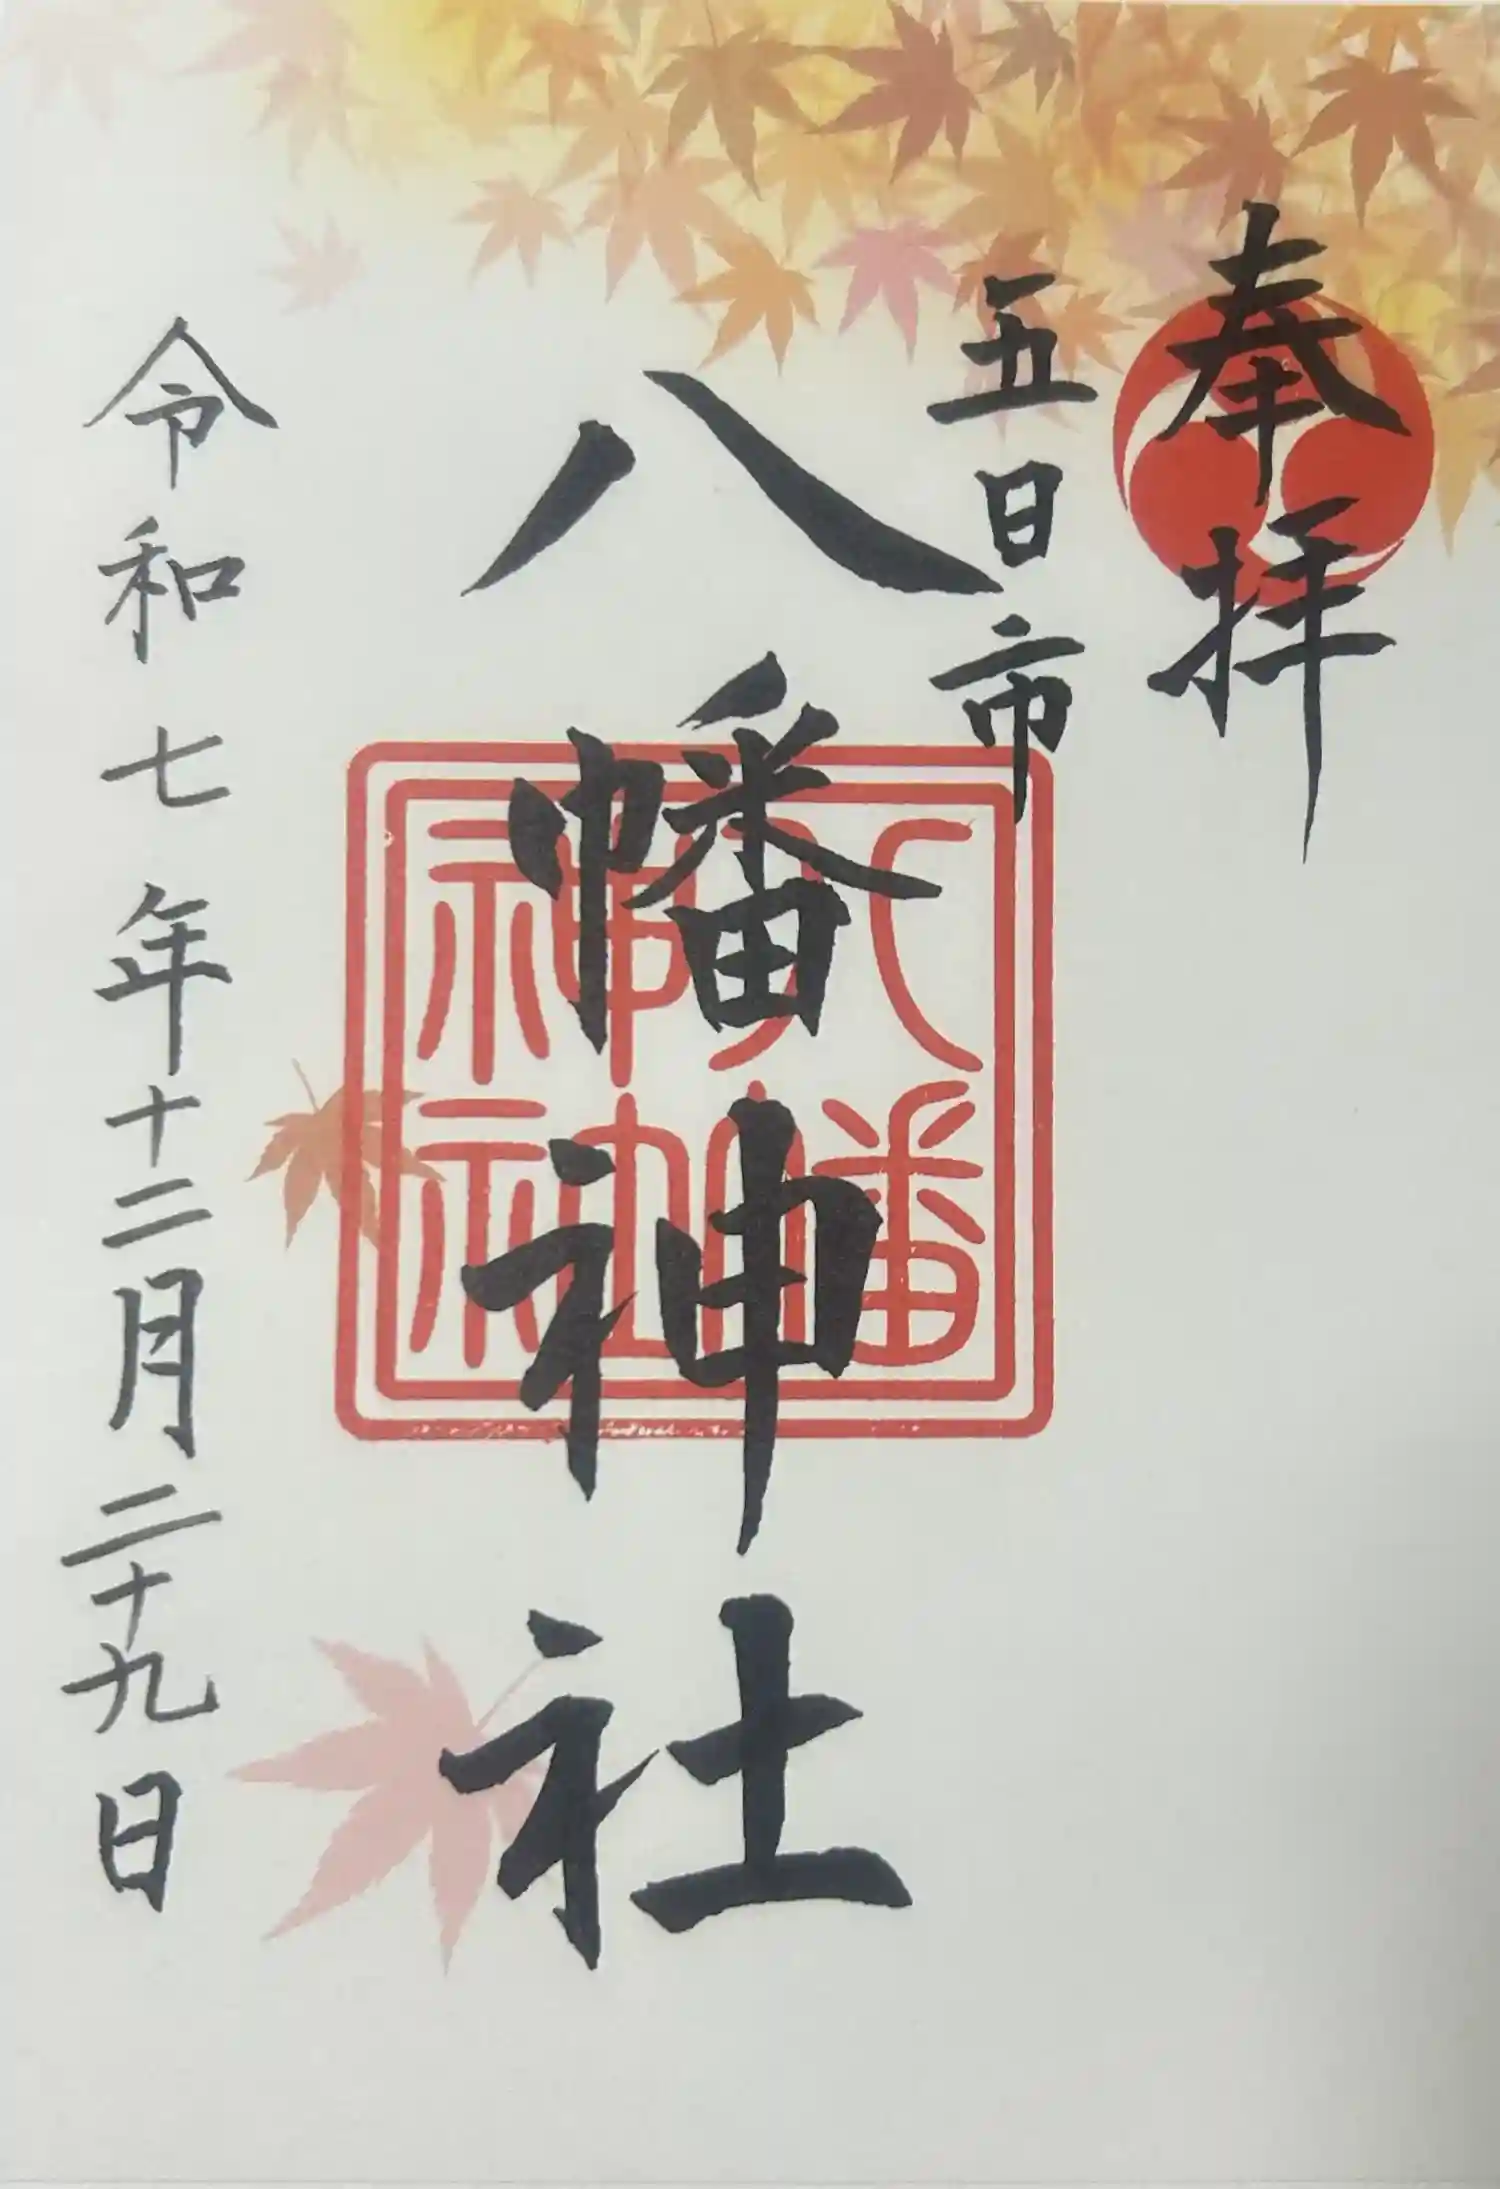 奉拝
五日市
八幡神社
八幡
神社
令和七年十二月二十九日